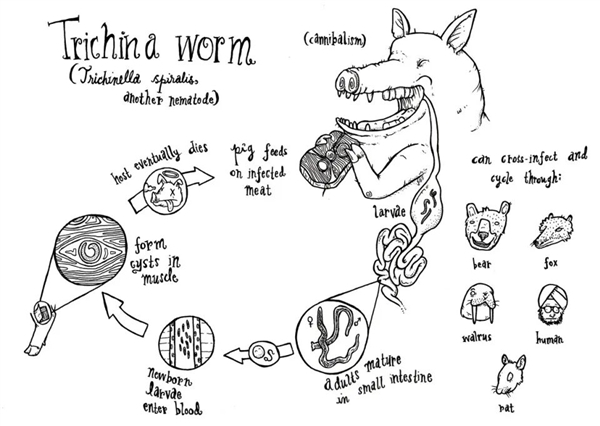 Trichina worm
(Trichinella spiralis,
another nematode)
(cannibalism)
host eventually dies
pig feeds
on infected
meat
larvae
can cross-infect and
cycle through:
bear
fox
walrus
human
rat
form
cysts in
muscle
newborn
larvae
enter blood
♀ ♂
adults mature
in small intestine